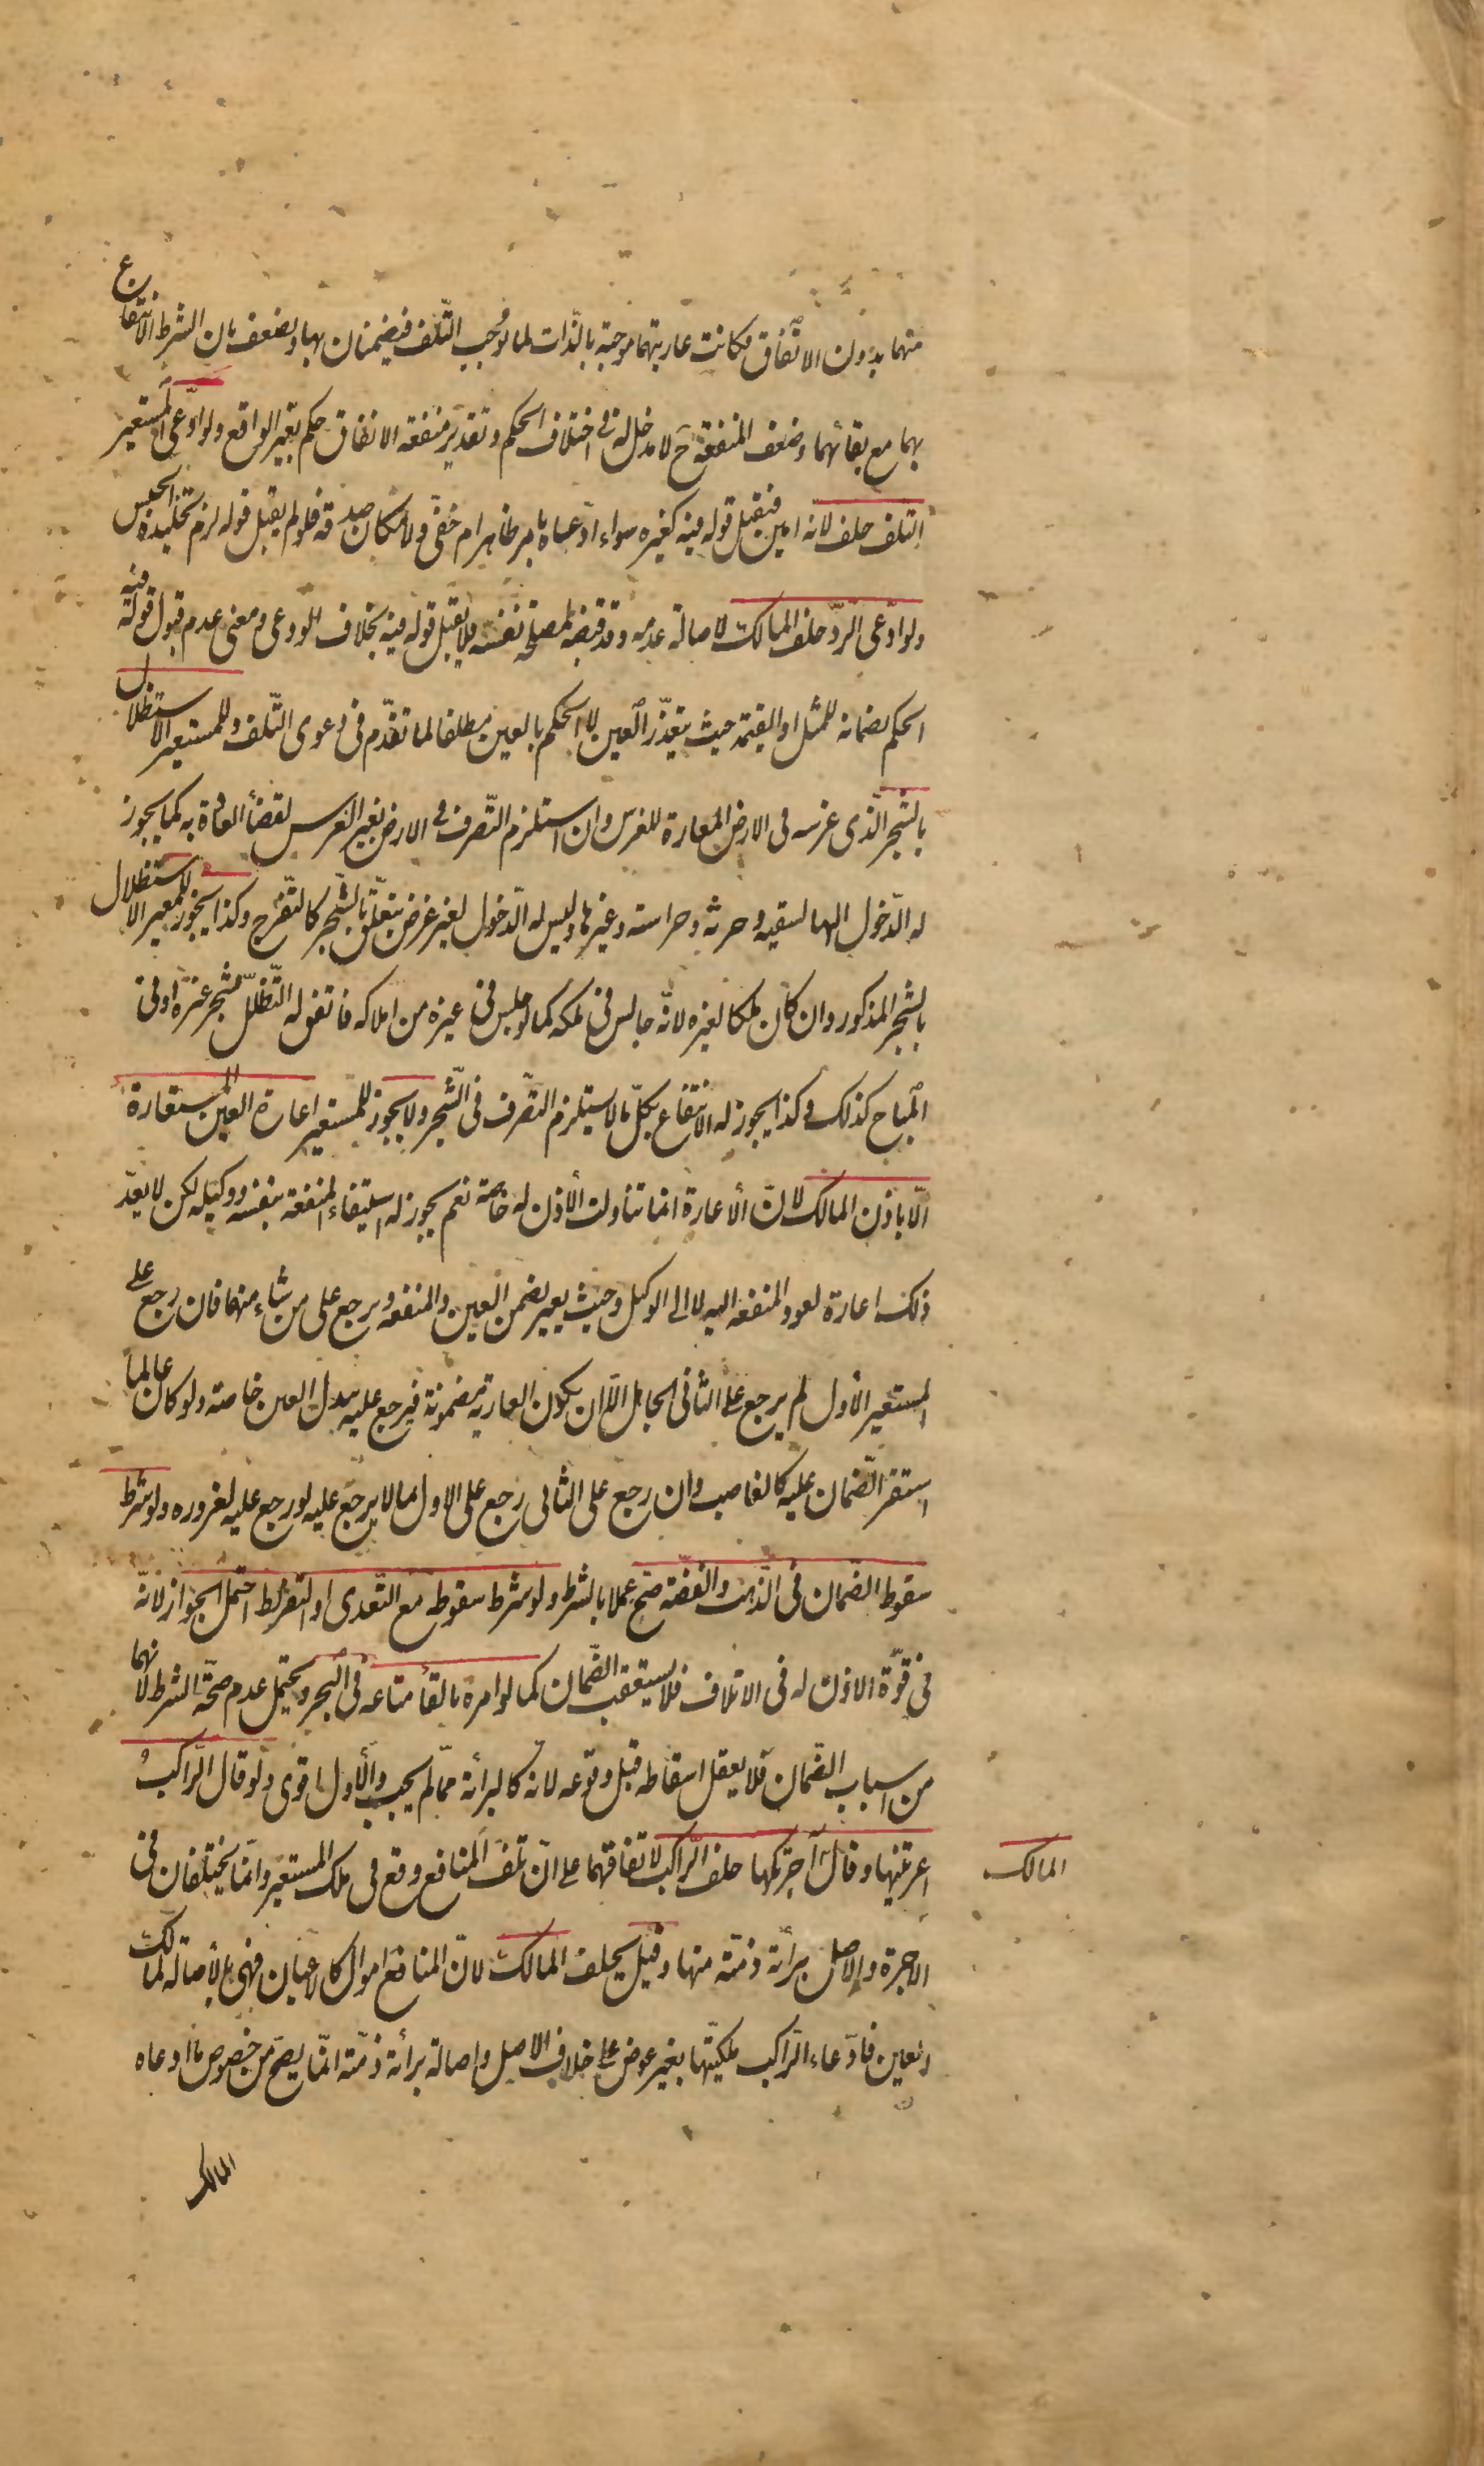 منهما بدون الاتفاق فكانت عاريتهما موجبة بالذات لما يوجب التلف فيضمنان بها ويضعف بان الشرط الانتفاع
بهما مع بقائهما وضعف المنفعة ح لا مدخل له في اختلاف الحكم وتقدير منفعة الانفاق حكم بغير الواقع ولو ادعى المستعير
التلف حلف لانه امين فيقبل قوله فيه كغيره سواء ادعاه بامر ظاهر ام خفي ولامكان صدقه فلو لم يقبل قوله لزم تخليده الحبس
ولو ادعى الرد حلف المالك لاصالة عدمه وقد قبضه لمصلحة نفسه فلا يقبل قوله فيه بخلاف الودعي ومعنى عدم قبول قوله فيه
الحكم بضمانه للمثل او القيمة حيث يتعذر العين لا الحكم بالعين مطلقا لما تقدم في دعوى التلف وللمستعير الاستظلال
بالشجر الذي غرسه في الارض المعارة للغرس وان استلزم التصرف في الارض بغير الغرس لقضأ العادة به كما يجوز
له الدخول اليها لسقيه وحرثه وحراسته وغيرها وليس له الدخول لغير غرض يتعلق بالشجر كالتفرج وكذا يجوز للمعير الاستظلال
بالشجر المذكور وان كان ملكا لغيره لانه جالس في ملكه كما لو جلس في غيره من املاكه فاتفق له التظلل بشجر غيره او في
المباح كذلك وكذا يجوز له الانتفاع بكل ما لا يستلزم التصرف في الشجر ولا يجوز للمستعير اعارة العين المستعارة
الا باذن المالك لان الأعارة انما تناولت الأذن له خاصة نعم يجوز له استيفاء المنفعة بنفسه ووكيله لكن لا يعد
ذلك اعارة لعود المنفعة اليه لا الى الوكيل وحيث يعير يضمن العين والمنفعة ويرجع على من شاء منهما فان رجع على
المستعير الأول لم يرجع على الثاني الجاهل الا ان يكون العارية مضمونة فيرجع عليه ببدل العين خاصة ولو كان عالما
استقر الضمان عليه كالغاصب وان رجع على الثاني رجع على الاول بما لا يرجع عليه لو رجع عليه لغروره ولو شرط
سقوط الضمان في الذهب والفضة صح عملا بالشرط ولو شرط سقوطه مع التعدي او التفريط احتمل الجواز لانه
في قوة الاذن له في الاتلاف فلا يستعقب الضمان كما لو امره بالقأ متاعه في البحر ويحتمل عدم صحة الشرط لانهما
من اسباب الضمان فلا يعقل اسقاطه قبل وقوعه لانه كالبرائة مما لم يجب والأول اقوى ولو قال الراكب
اعرتنيها وقال آجرتكها حلف الراكب لاتفاقهما على ان تلف المنافع وقع في ملك المستعير وانما يختلفان في
المالك
الاجرة والاصل برائة ذمته منها وقيل يحلف المالك لان المنافع اموال كالاعيان فهي بالأصالة لمالك
العين فادعاء الراكب ملكيتها بغير عوض على خلاف الاصل واصالة برائة ذمته انما يصح من خصوص ما ادعاه
المالك